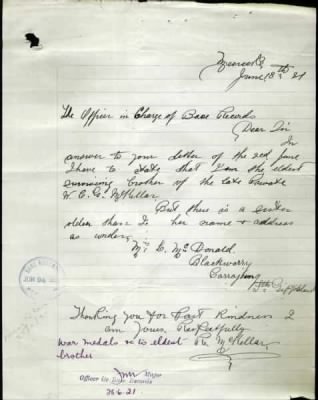 June 18th 21
The Officer in Charge of Base Records
Dear Sir
In
answer to your letter of the 2nd June
I have to state that I am the eldest
surviving brother of the late Private
W. E. G. McKellar
But there is a sister
older than I her name & address
as under,
Mrs E. McDonald
Blackwarry
Carrajung
Thanking you for Past Kindness I
am Yours Respectfully
war medals &c to eldest McKellar
brother
Major
Officer i/c Base Records
28-6-21